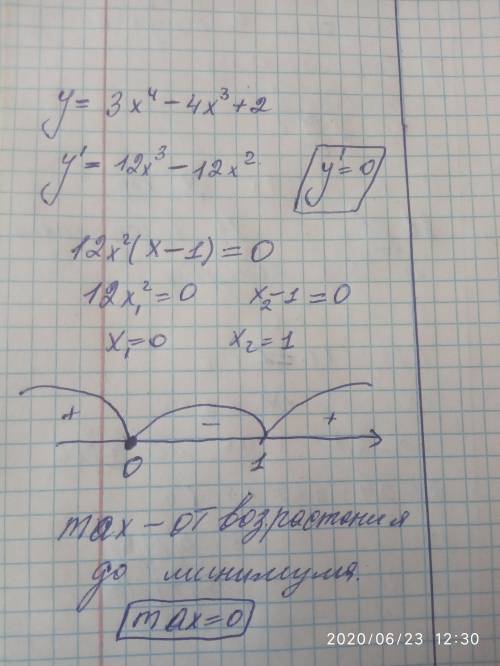 y = 3x⁴ - 4x³ + 2
y' = 12x³ - 12x² y' = 0
12x²(x - 1) = 0
12x₁² = 0 x₂ - 1 = 0
x₁ = 0 x₂ = 1
+ - +
0 1
max - от возрастания
до минимума.
max = 0
2020/06/23 12:30